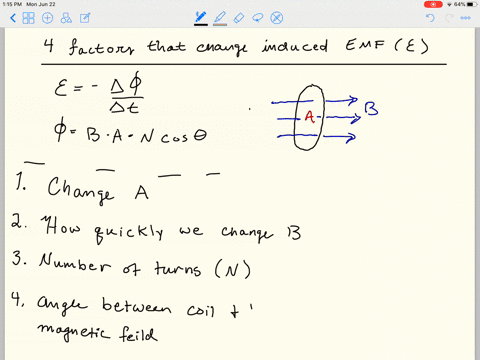 1:15 PM Mon Jun 22
64%
4 factors that change induced EMF (ε)
ε = - Δϕ/Δt
ϕ = B · A - N cos θ
A
B
1. Change A
2. How quickly we change B
3. Number of turns (N)
4. angle between coil +
magnetic feild